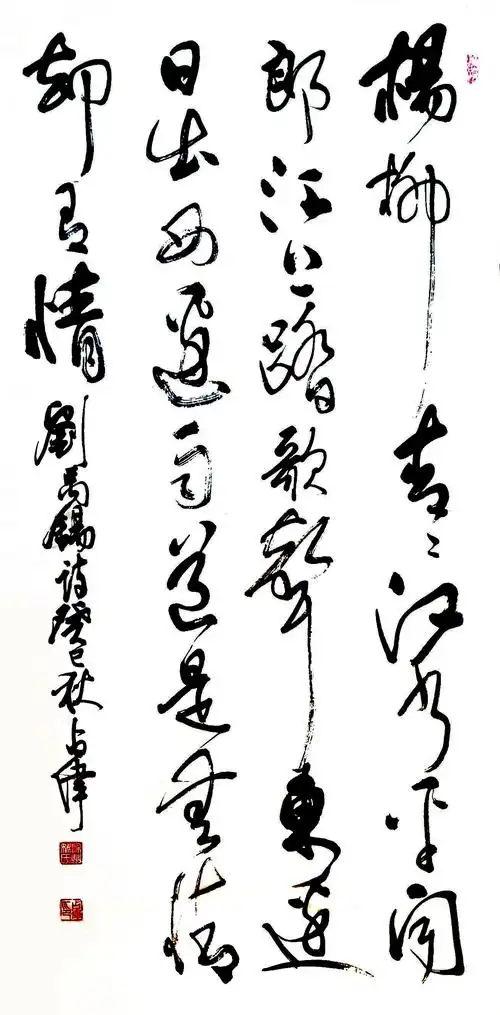 楊柳青〻江水平聞
郎江上踏歌聲東邊
日出西邊雨道是無情
却有情
劉禹錫詩癸巳秋占偉